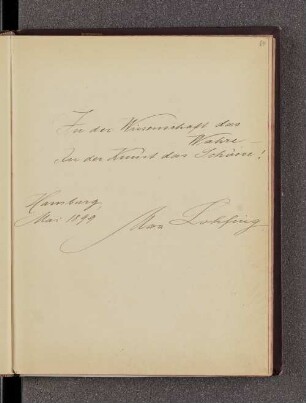 In der Wissenschaft das
Wahre
In der Kunst das Schöne!
Hamburg
Mai 1899
Max Lohfing